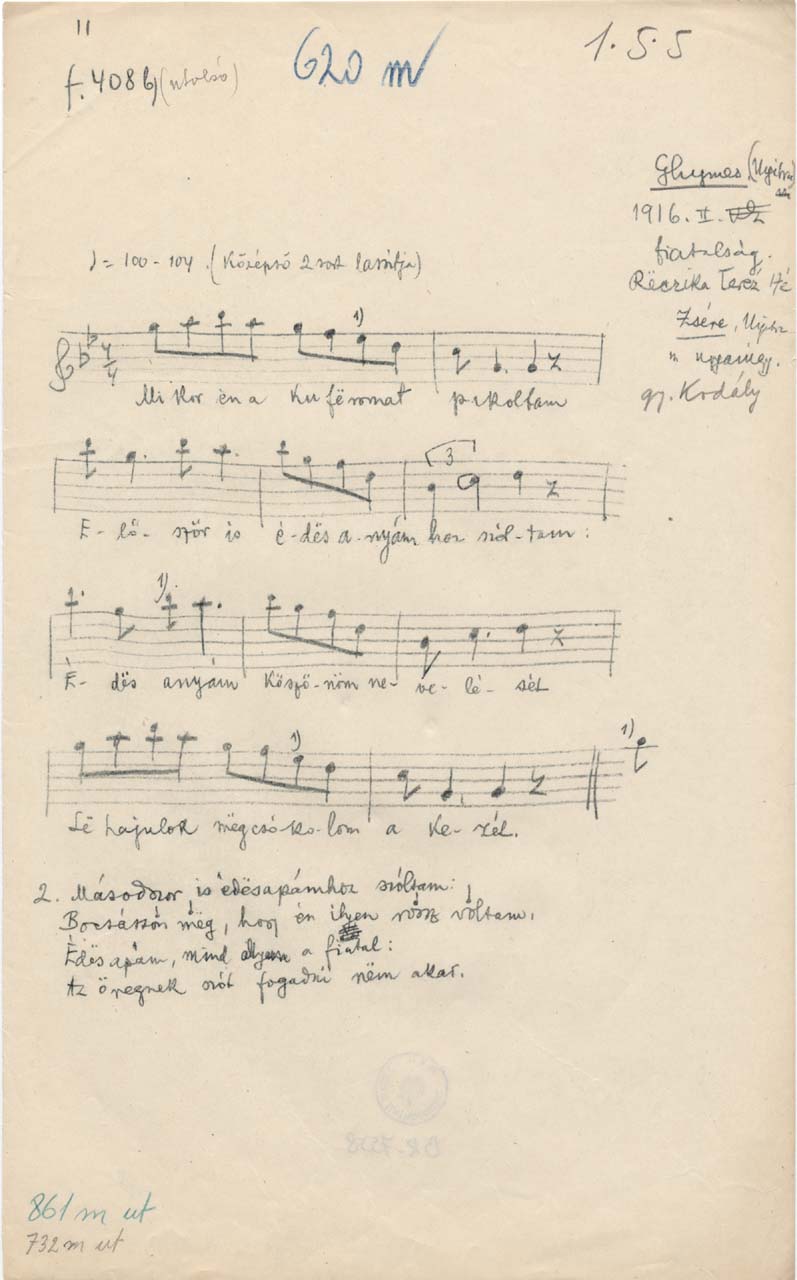 11
f. 408 b) (utolsó)
620 m
1. 5 5
Ghymes (Nyitra)
1916. II.
fiatalság.
Rëczika Teréz
Zsére, Nyitra
m ugyanígy.
gy. Kodály
♩ = 100 - 104. (Középső 2 sort lassítja)
1)
4/4
Mikor én a kufëromat pakoltam
3
E - lő - ször is é - dës a - nyám hoz szól - tam:
1)
É - dës anyám köszö - nöm ne - ve - lé - sét
1) 1)
Lë hajulok mëgcsó - ko - lom a ke - zét.
2. Másodszor is édësapámhoz szóltam:
Bocsásson mëg, hogy én ilyen rossz vóltam.
Édësapám, mind ilyen a fiatal:
Az öregnek szót fogadni nëm akar.
861 m ut
732 m ut